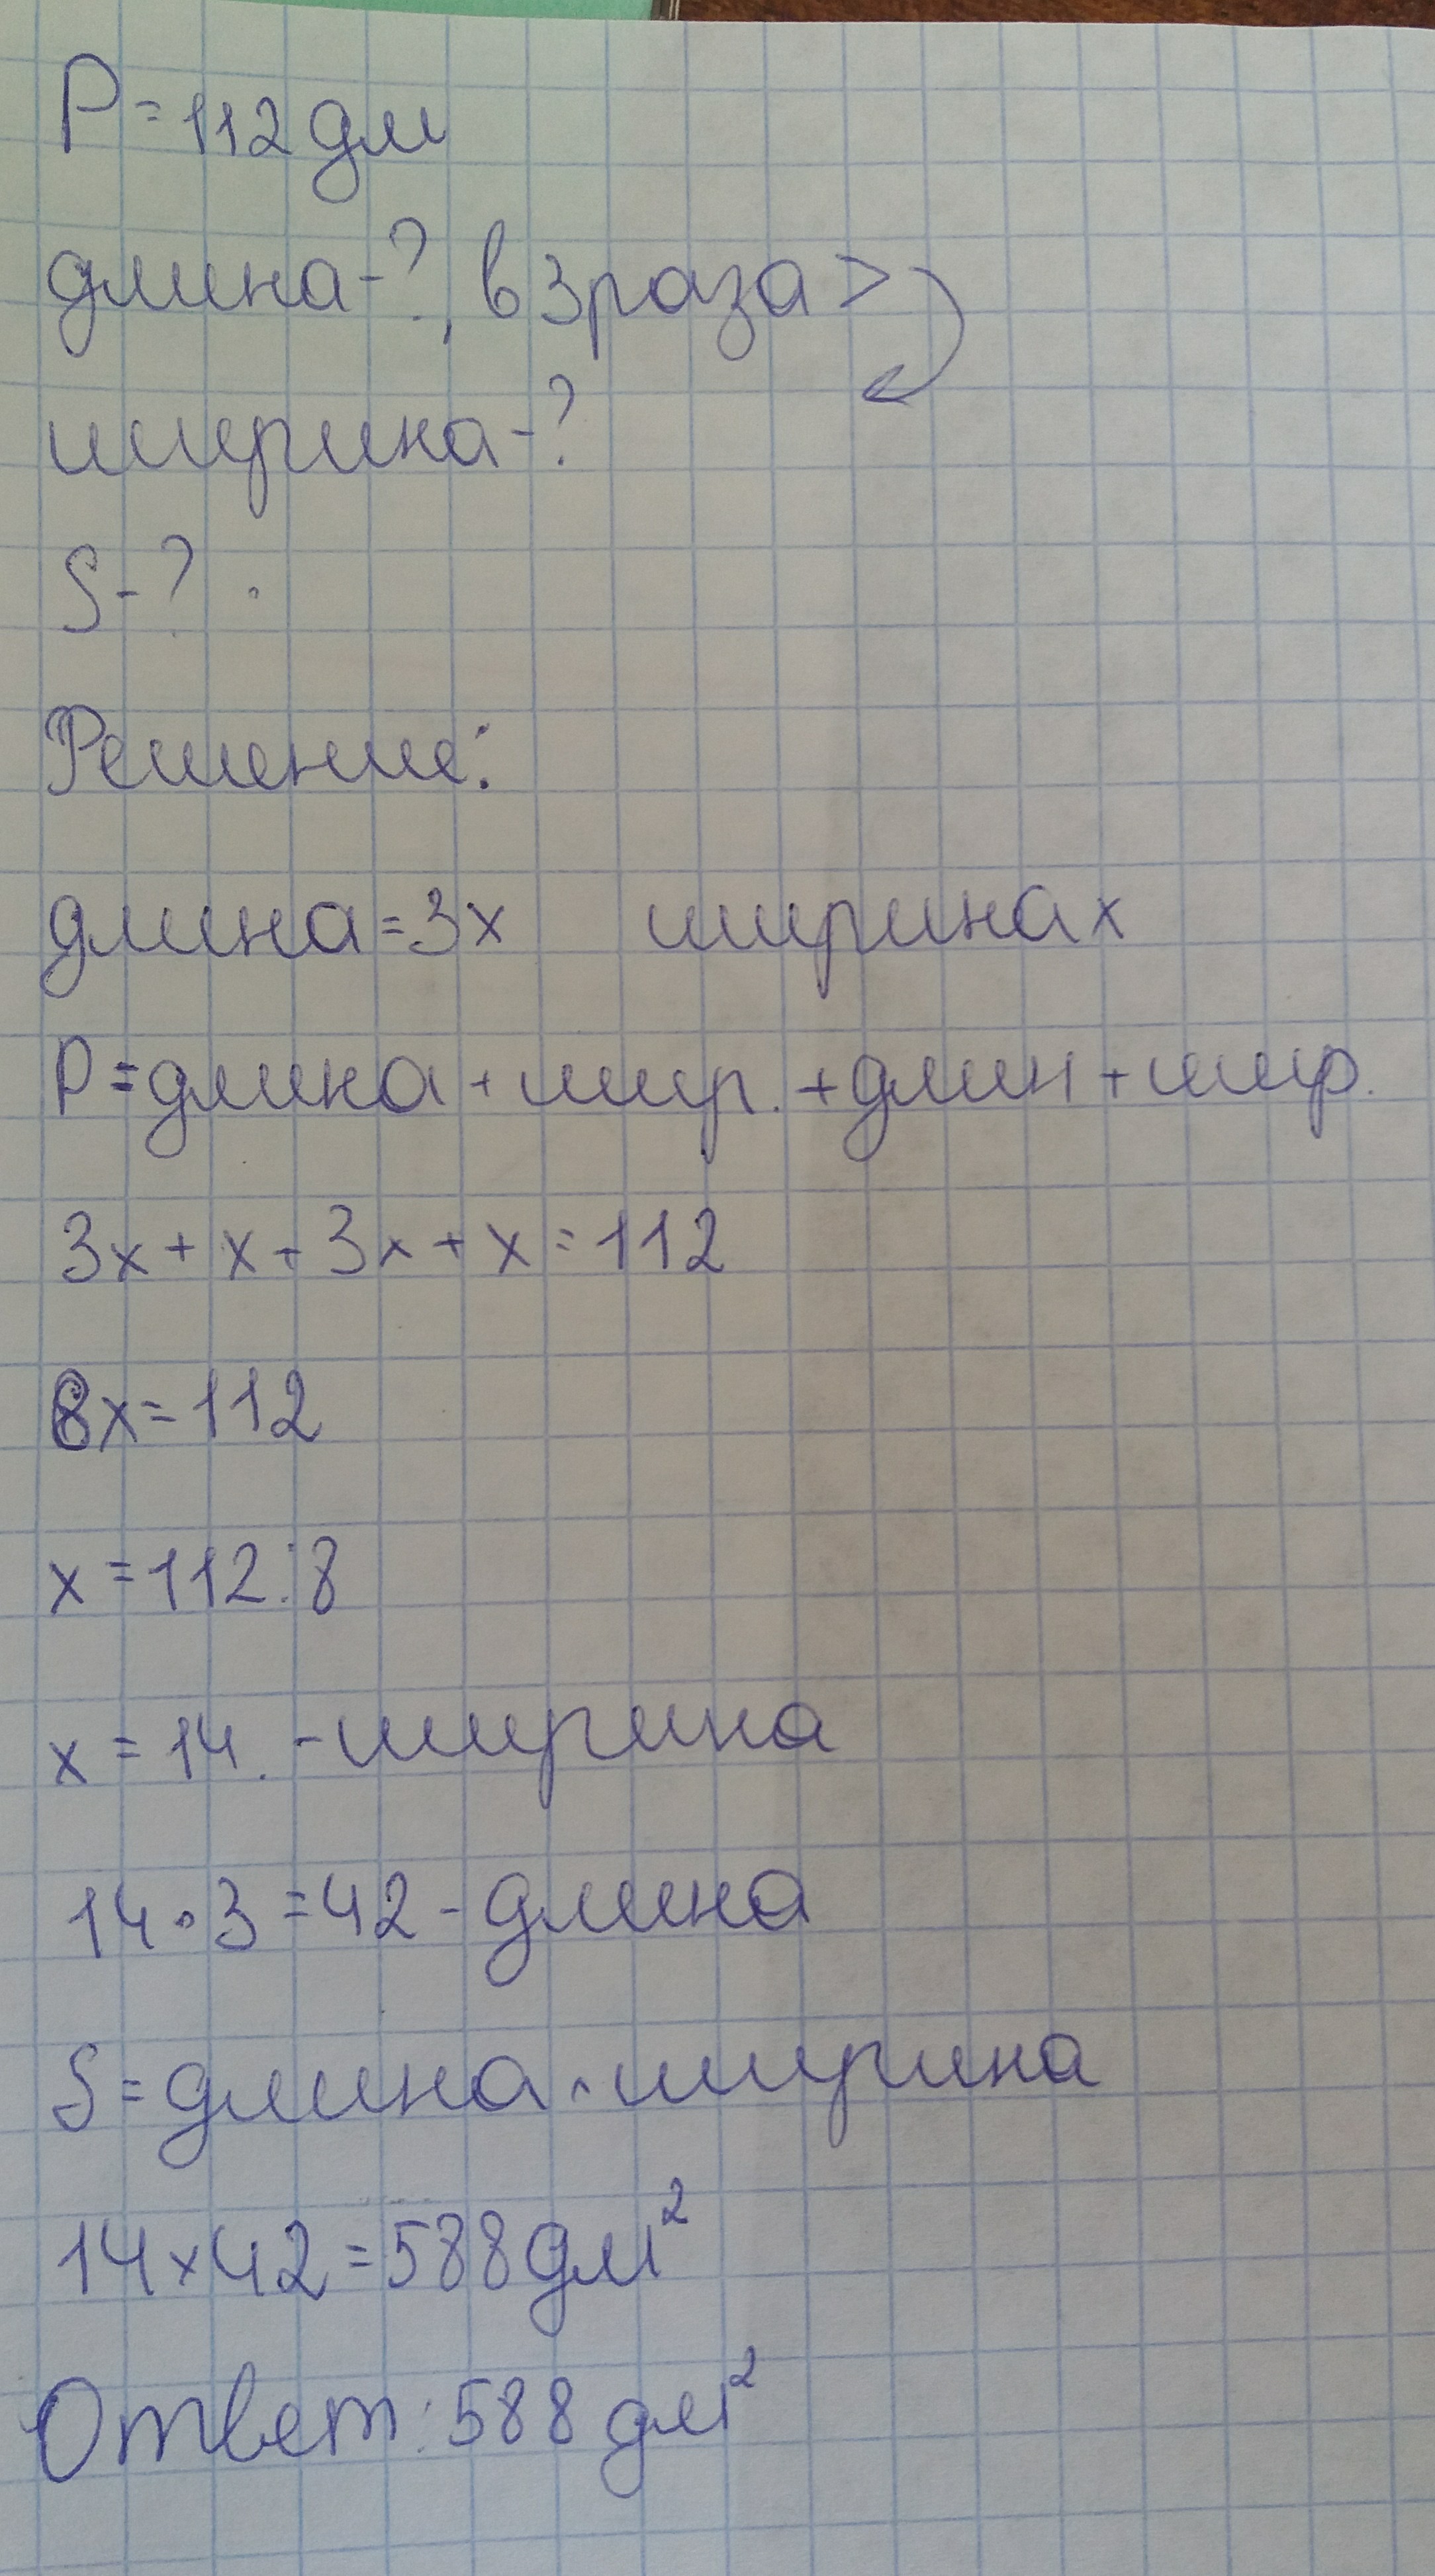 P=112дм
длина-?, в 3 раза >
ширина-?
S-?
Решение:
длина=3x ширина x
P=длина+шир.+длин+шир.
3x+x+3x+x=112
8x=112
x=112:8
x=14.-ширина
14·3=42-длина
S=длина·ширина
14×42=588дм²
Ответ:588 дм²